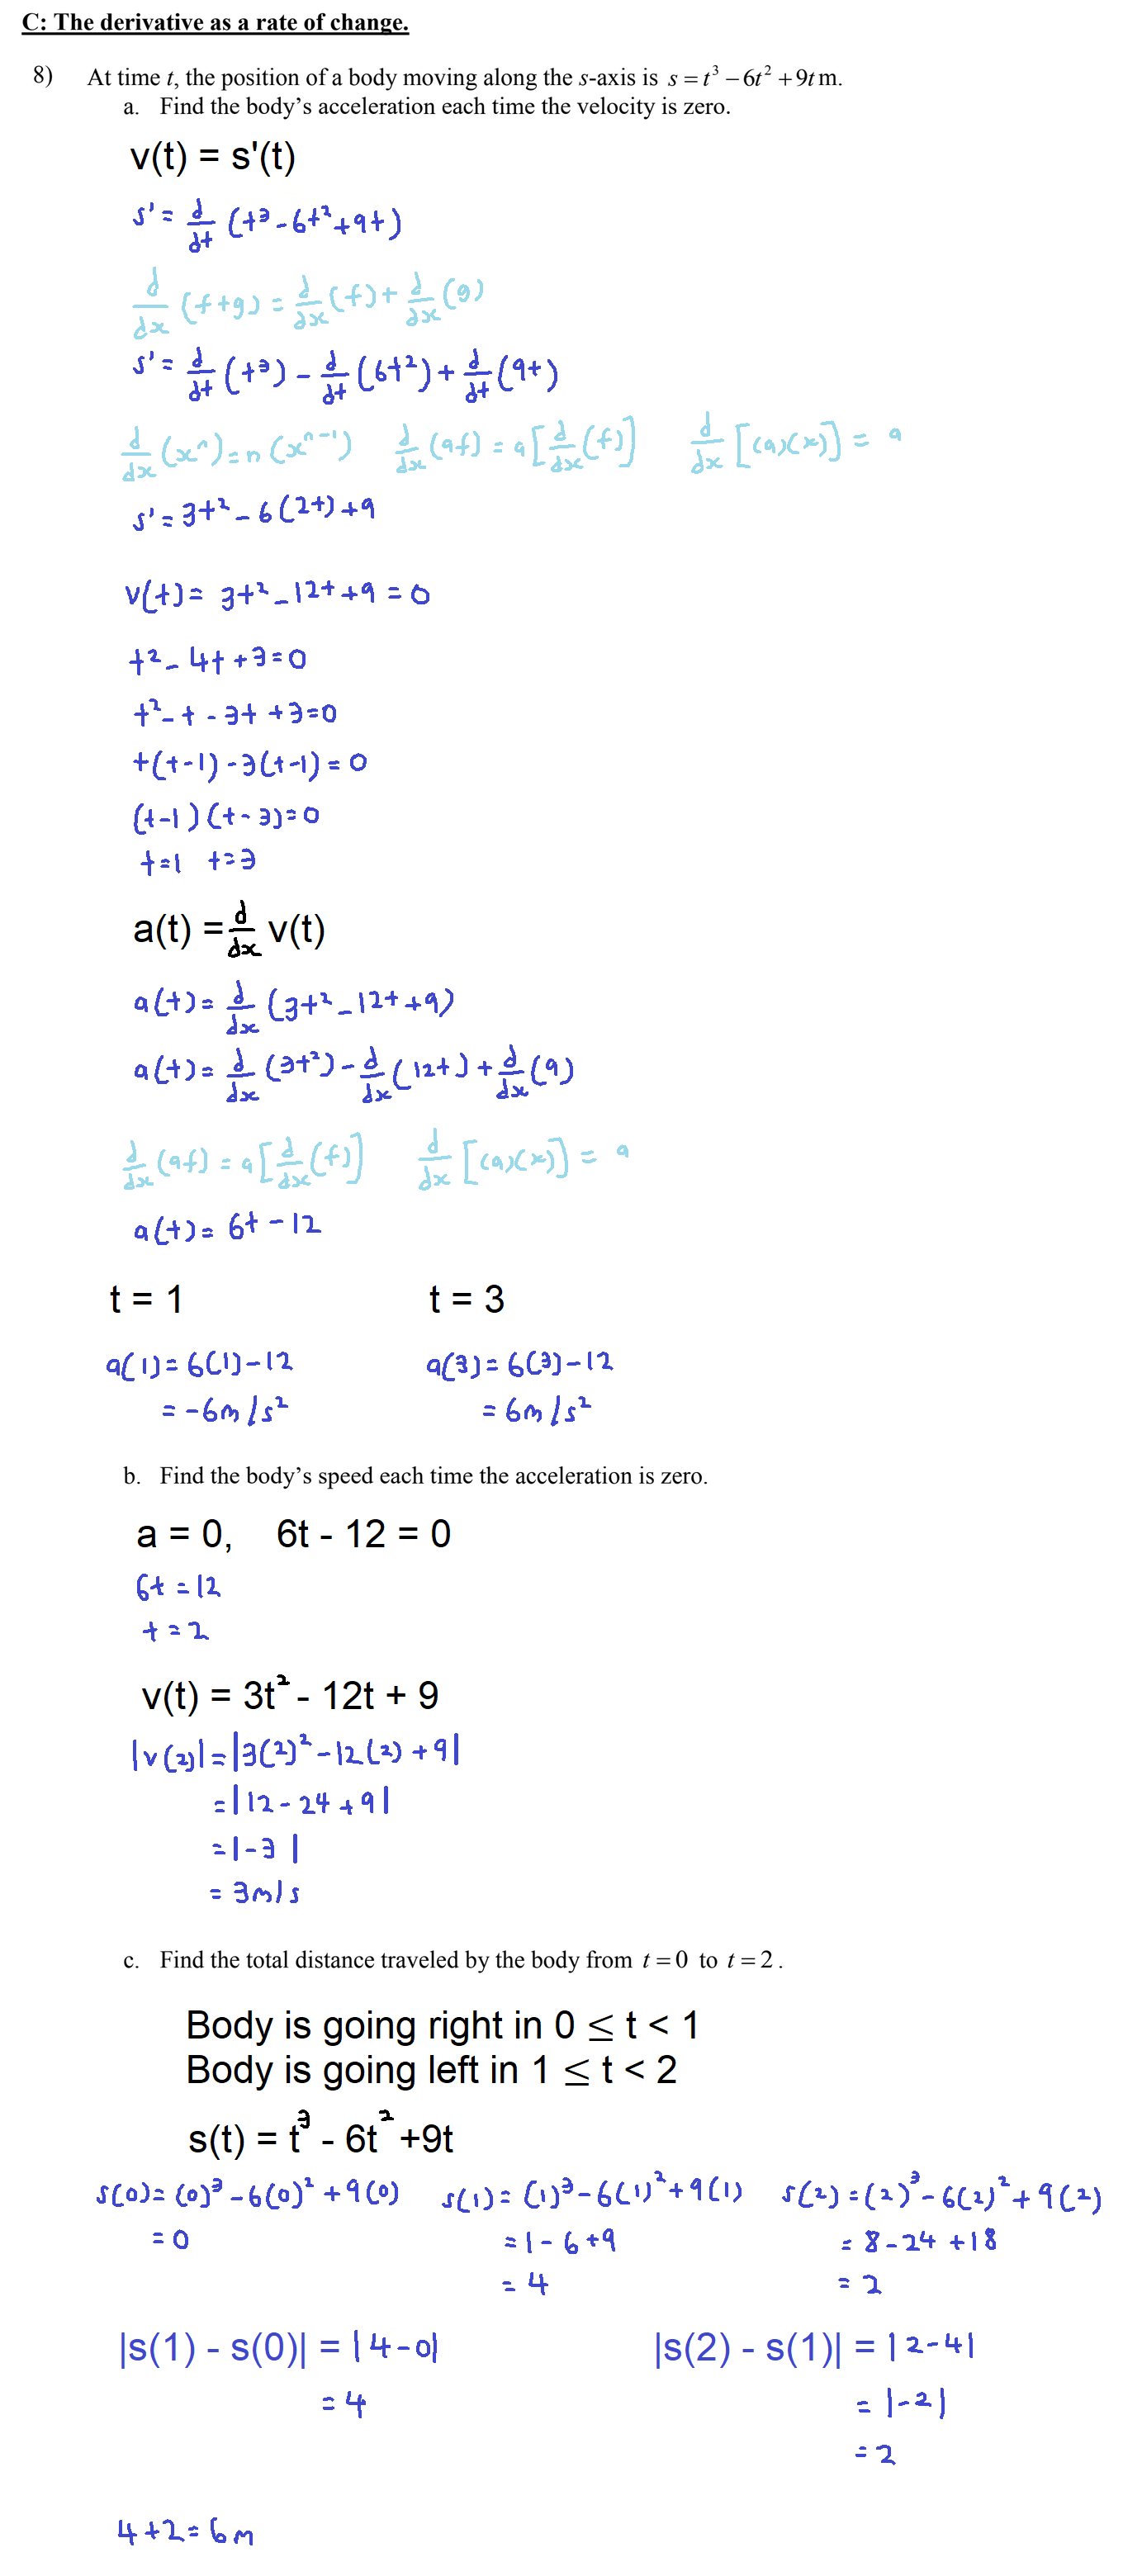 C: The derivative as a rate of change.
8) At time t, the position of a body moving along the s-axis is s = t³ − 6t² + 9t m.
a. Find the body's acceleration each time the velocity is zero.
v(t) = s'(t)
s' = d/dt (t³ - 6t² + 9t)
d/dx (f+g) = d/dx (f) + d/dx (g)
s' = d/dt (t³) - d/dt (6t²) + d/dt (9t)
d/dx (xⁿ) = n(xⁿ⁻¹) d/dx (af) = a[d/dx (f)] d/dx [(a)(x)] = a
s' = 3t² - 6(2t) + 9
v(t) = 3t² - 12t + 9 = 0
t² - 4t + 3 = 0
t² - t - 3t + 3 = 0
t(t-1) - 3(t-1) = 0
(t-1)(t-3) = 0
t=1 t=3
a(t) = d/dx v(t)
a(t) = d/dx (3t² - 12t + 9)
a(t) = d/dx (3t²) - d/dx (12t) + d/dx (9)
d/dx (af) = a[d/dx (f)] d/dx [(a)(x)] = a
a(t) = 6t - 12
t = 1 t = 3
a(1) = 6(1) - 12 a(3) = 6(3) - 12
= -6m/s² = 6m/s²
b. Find the body's speed each time the acceleration is zero.
a = 0, 6t - 12 = 0
6t = 12
t = 2
v(t) = 3t² - 12t + 9
|v(2)| = |3(2)² - 12(2) + 9|
= |12 - 24 + 9|
= |-3|
= 3m/s
c. Find the total distance traveled by the body from t = 0 to t = 2.
Body is going right in 0 ≤ t < 1
Body is going left in 1 ≤ t < 2
s(t) = t³ - 6t² +9t
s(0) = (0)³ - 6(0)² + 9(0) s(1) = (1)³ - 6(1)² + 9(1) s(2) = (2)³ - 6(2)² + 9(2)
= 0 = 1 - 6 + 9 = 8 - 24 + 18
= 4 = 2
|s(1) - s(0)| = |4-0| |s(2) - s(1)| = |2-4|
= 4 = |-2|
= 2
4+2 = 6m